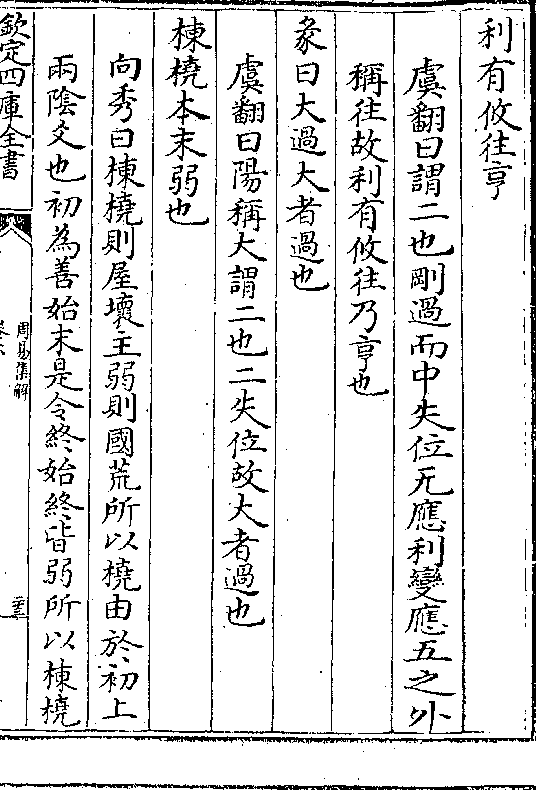 利有攸往亨
虞翻曰謂二也剛過而中失位无應利變應五之外
稱往故利有攸往乃亨也
彖曰大過大者過也
虞翻曰陽稱大謂二也二失位故大者過也
棟橈本末弱也
向秀曰棟橈則屋壞主弱則國荒所以橈由於初上
兩陰爻也初為善始末是令終始終皆弱所以棟橈
欽定四庫全書
周易集解